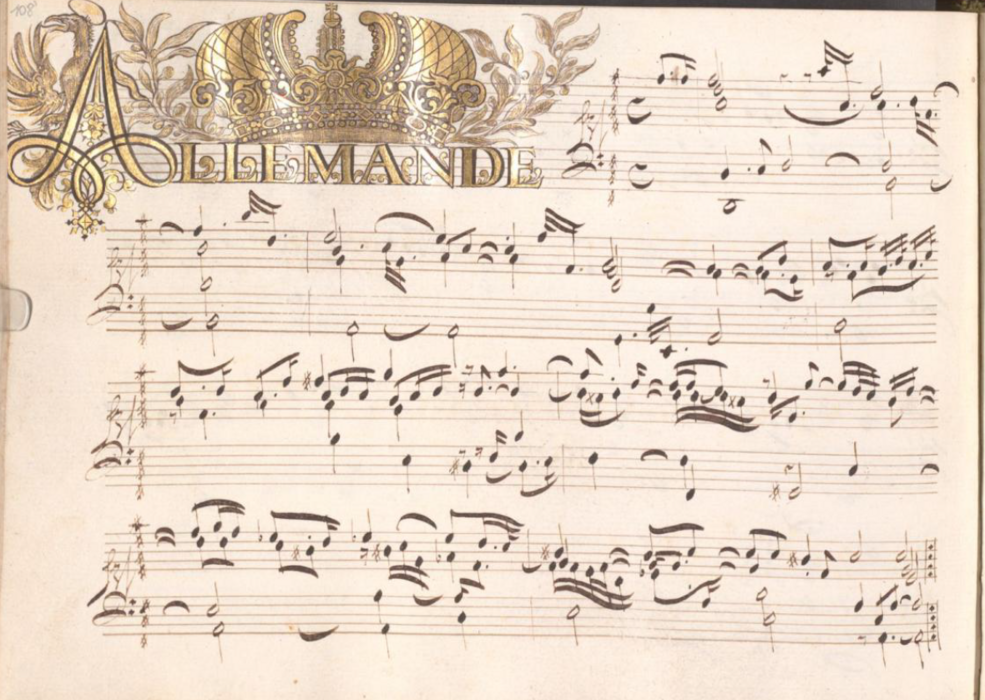 108
ALLEMANDE